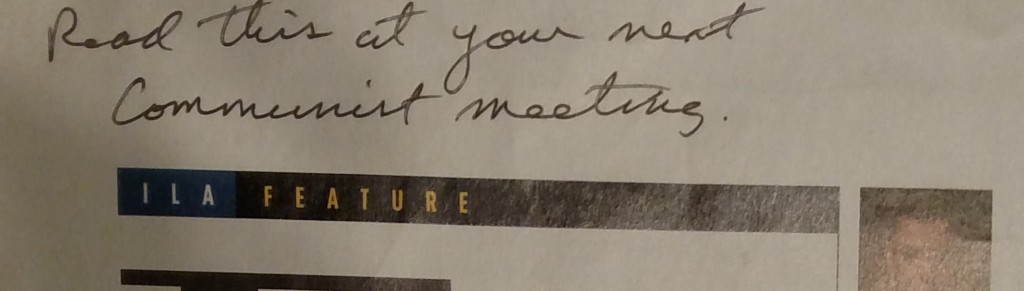 Read this at your next
Communist meeting.
ILA FEATURE